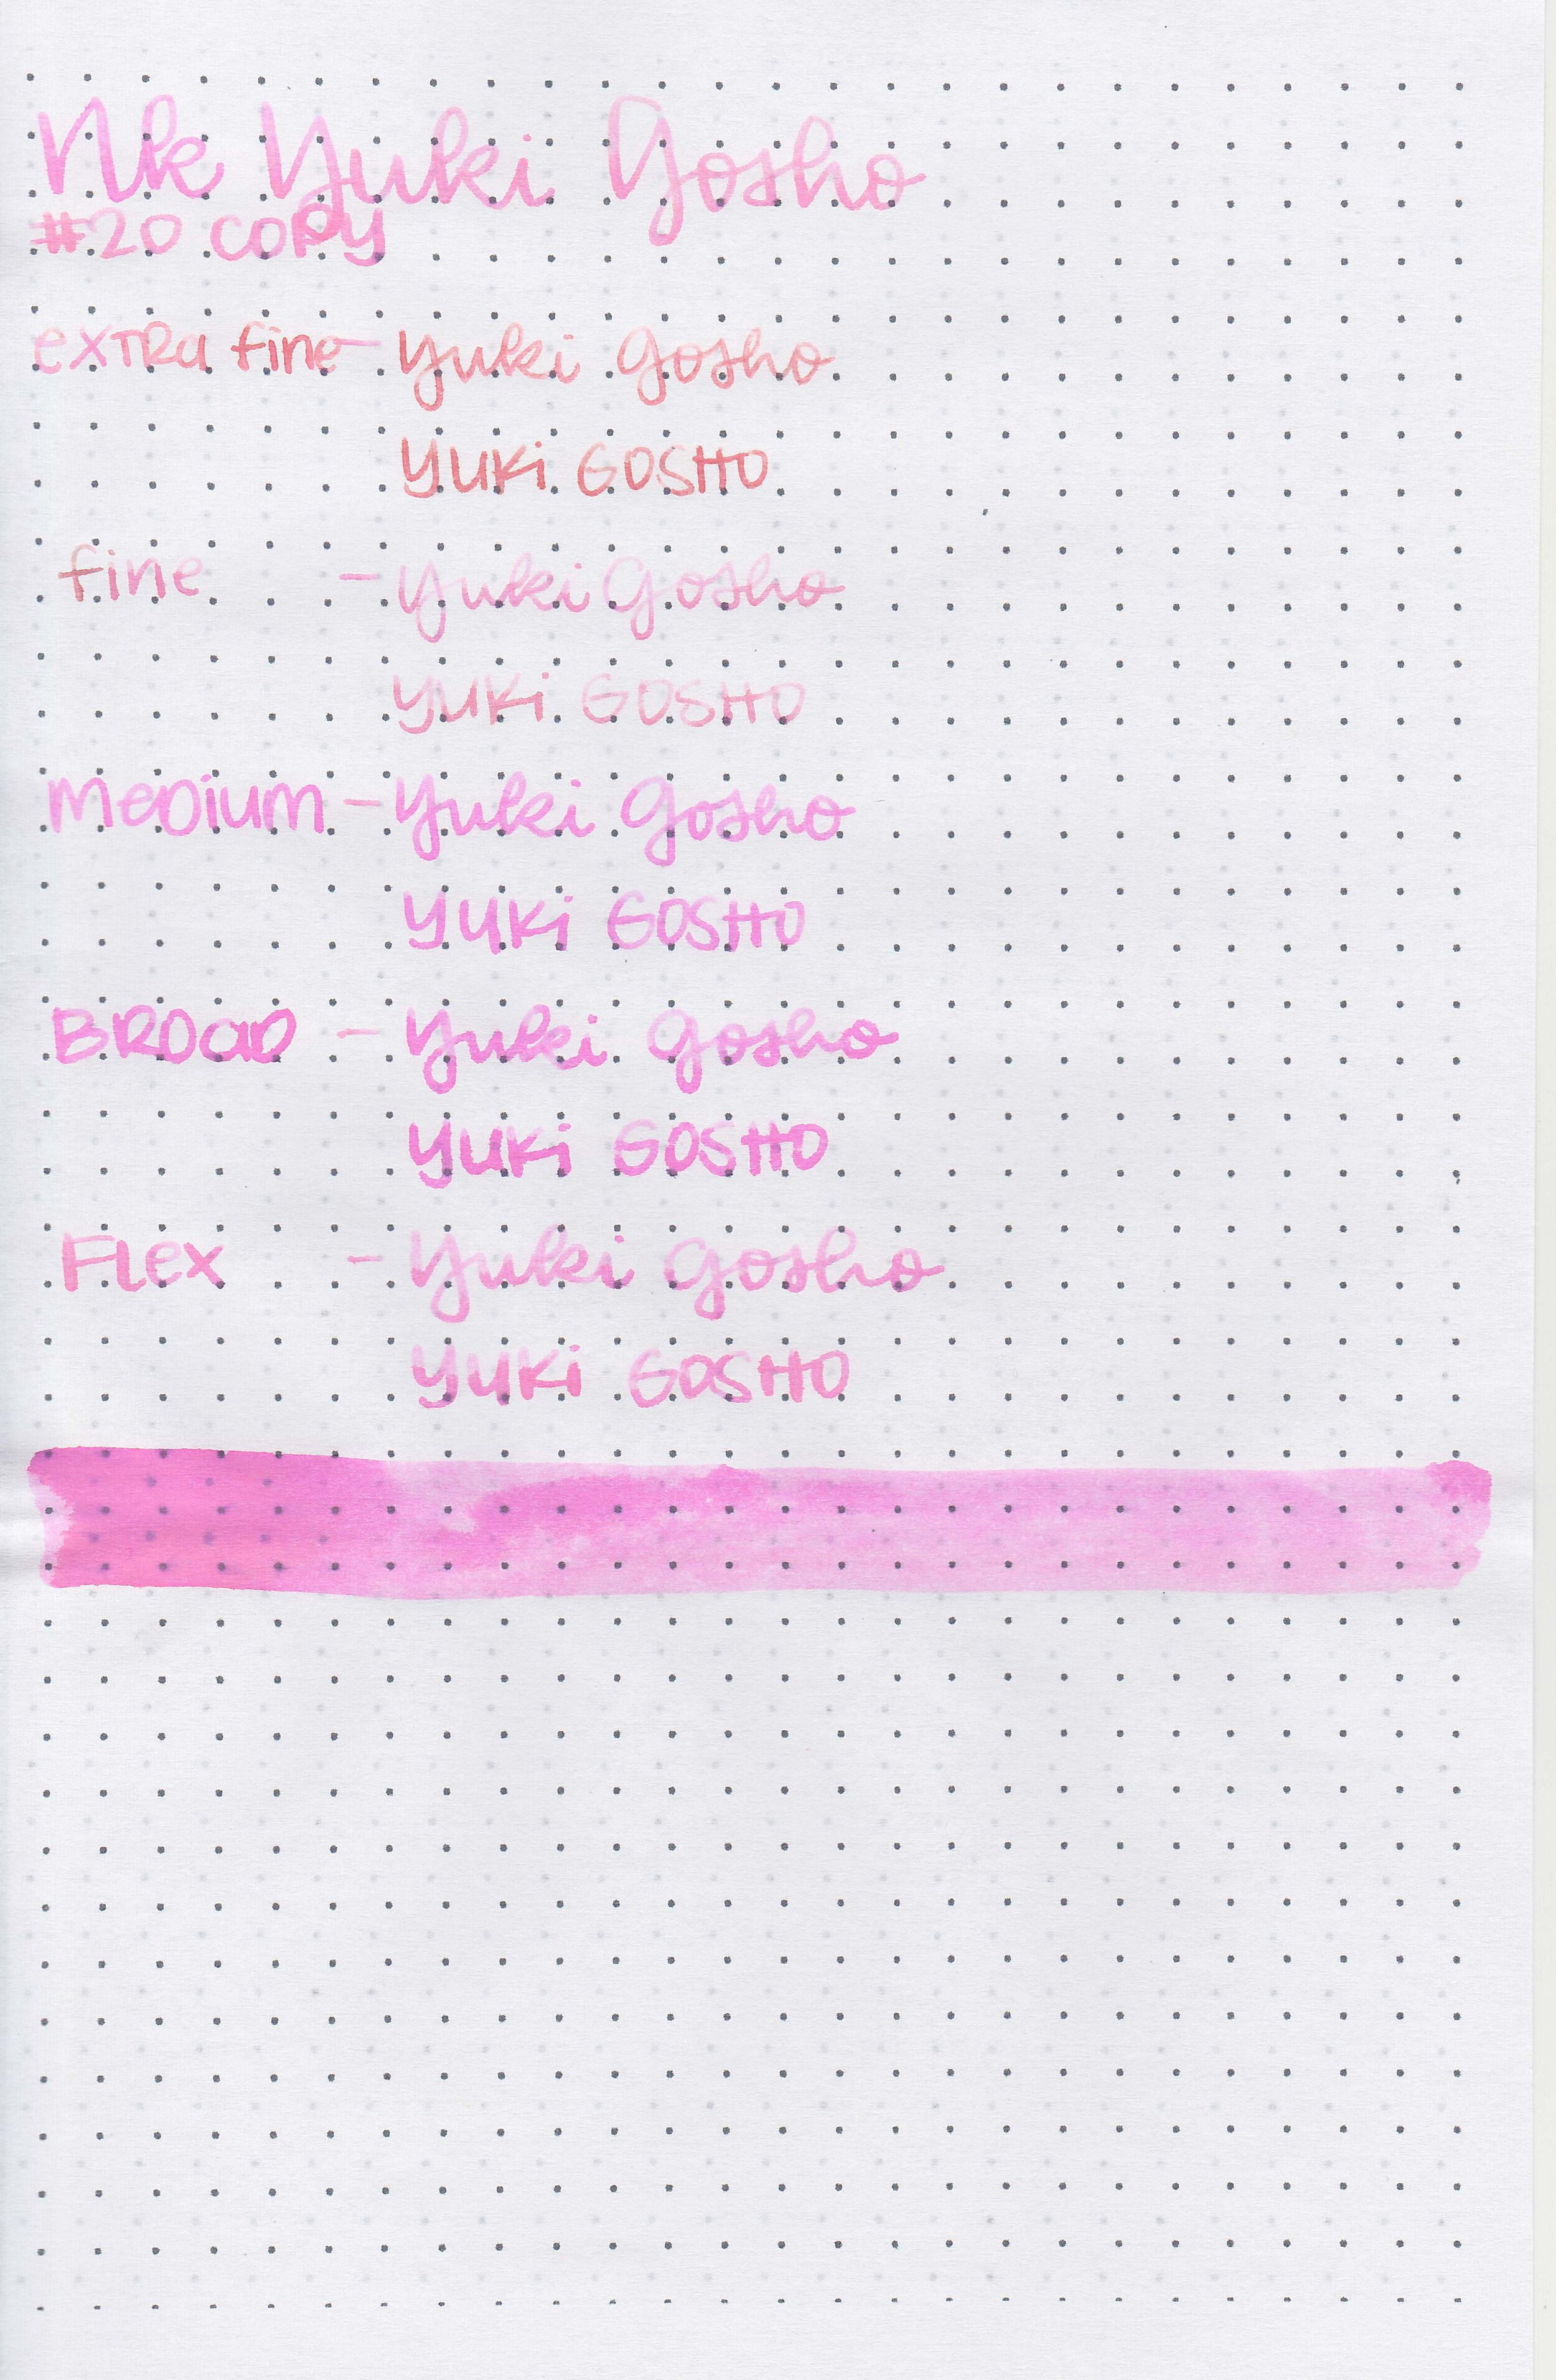 Nk Yuki Gosho
#20 COPY
extra fine - Yuki Gosho
YUKi GOSHO
fine - Yuki Gosho
YUKi GOSHO
Medium - Yuki Gosho
YUKi GOSHO
BROAD - Yuki Gosho
YUKi GOSHO
FLex - Yuki Gosho
YUKi GOSHO